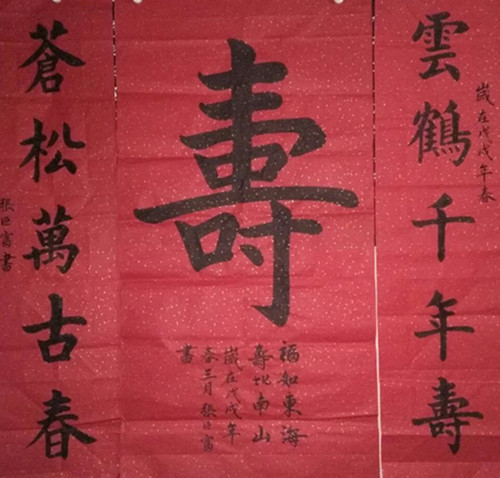 雲鶴千年壽
歲在戊戌年春
壽
福如東海
壽比南山
歲在戊戌年
春三月張巨富
書
蒼松萬古春
張巨富書